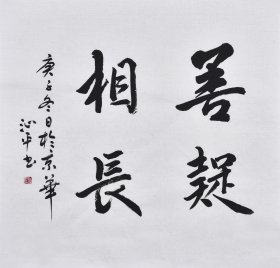 善疑
相長
庚子冬日於京華
沁平书